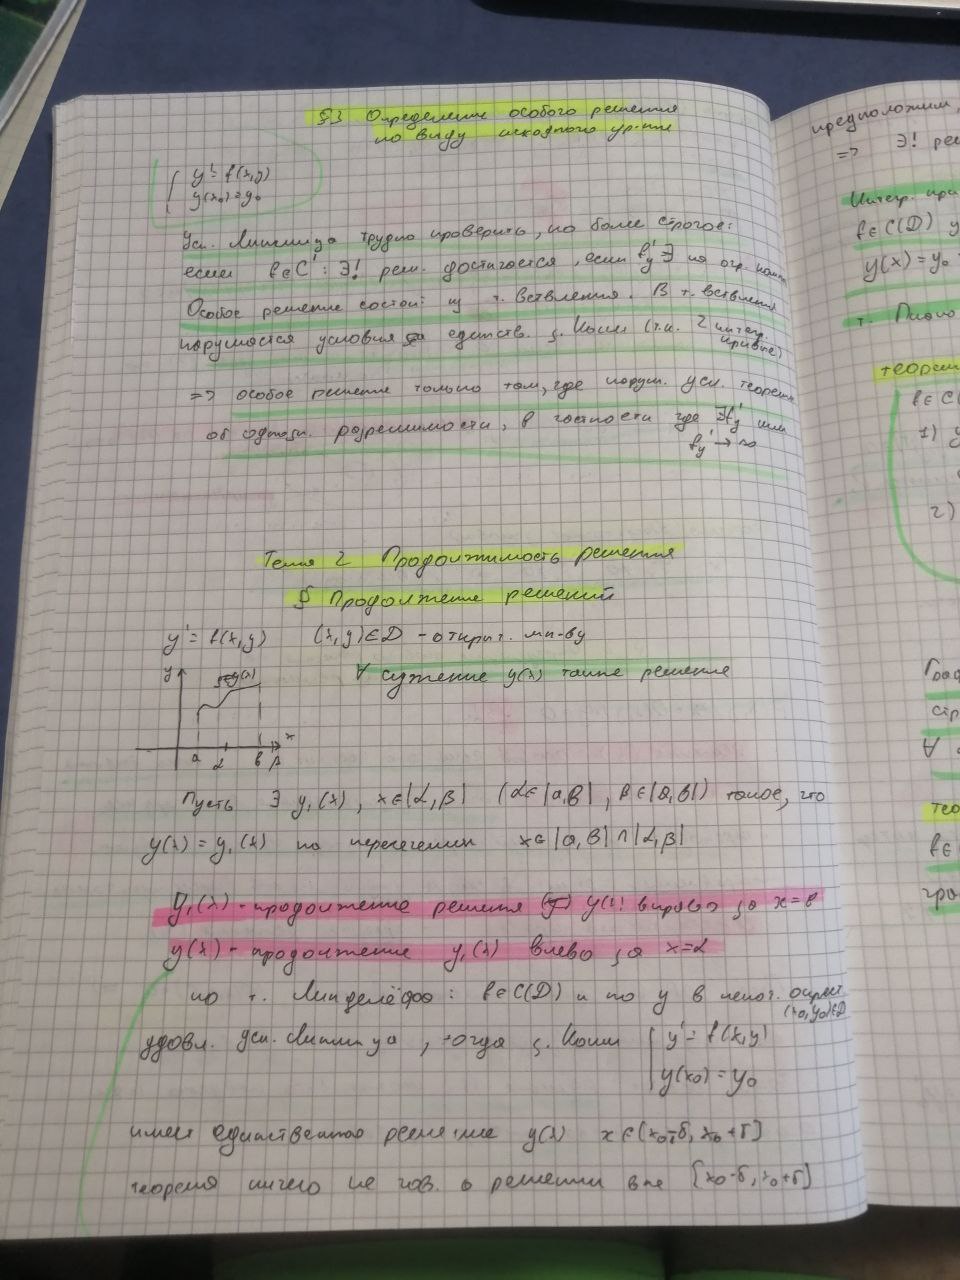 §3 Определение особого решения
по виду исходного ур-ния
y' = f(x,y)
y(x₀) = y₀
Усл. Липшица трудно проверить, но более строгое:
если f∈C' : ∃! реш. достигается, если f'y ∃ на огр.
Особое решение состоит из т. ветвления. В т. ветвления
нарушается условия единств. з. Коши (т.к. 2 интегр.
кривые)
=> особое решение только там, где наруш. усл. теоремы
об однозн. разрешимости, в частности где ∄f'y или
f'y → ∞
Тема 2 Продолжимость решения
§ Продолжение решений
y' = f(x,y) (x,y)∈D - открыт. мн-ву
y
y(x)
∀ сужение y(x) также решение
x
a α b β
Пусть ∃ y₁(x), x∈|α,β| (α∈|a,b|, β∈|a,b|) такое, что
y(x) = y₁(x) на пересечении x∈|a,b|∩|α,β|
y₁(x) - продолжение решения y(x) вправо за x=b
y(x) - продолжение y₁(x) влево за x=α
по т. Линделёфа: f∈C(D) и по y в некот. окрест.
(x₀,y₀)∈D
удовл. усл. Липшица, тогда з. Коши y' = f(x,y)
y(x₀) = y₀
имеет единственное решение y(x) x∈[x₀-δ, x₀+δ]
теорема ничего не гов. о решении вне [x₀-δ, x₀+δ]
предположим,
=> ∃! реш
Интегр. кри
f∈C(D)
y(x) = y₀
т. Пеано
теорем
f∈C(
1)
2)
Граф
стр
∀
тео
f∈
гра